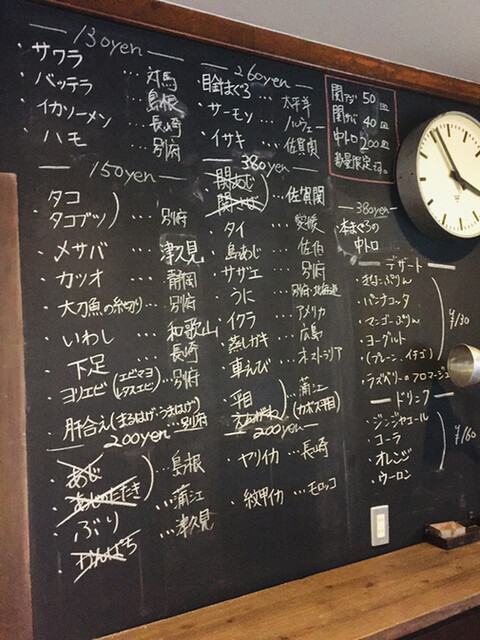 130yen
・サワラ … 対馬
・バッテラ … 島根
・イカソーメン … 長崎
・ハモ … 別府
150yen
・タコ
・タコブツ … 別府
・メサバ … 津久見
・カツオ … 静岡
・大刀魚の糸切り… 別府
・いわし … 和歌山
・下足 … 長崎
・ヨリエビ(エビマヨ レタスエビ) …別府
・肝合え(まるはげ・うまはげ) … 別府
200yen
・あじ
・あじのたたき … 島根
・ぶり … 蒲江
・かんぱち … 津久見
260yen
・目鉢まぐろ … 太平洋
・サーモン … ノルウェー
・イサキ … 佐賀関
380yen
・関あじ
・関さば … 佐賀関
・タイ … 愛媛
・島あじ … 佐伯
・サザエ … 別府
・うに … 別府・北海道
・イクラ … アメリカ
・蒸しガキ … 広島
・車えび … オーストラリア
・平目
・えんがわ … 蒲江(カボス平目)
200yen
・ヤリイカ … 長崎
・紋甲イカ … モロッコ
関アジ 50皿
関サバ 40皿
中トロ 200皿
数量限定
380yen
・本まぐろの
中トロ
デザート
・きなこぷりん
・パンナコッタ
・マンゴーぷりん
・ヨーグルト
(プレーン、イチゴ)
・ラズベリーのフロマージュ
¥130
ドリンク
・ジンジャエール
・コーラ
・オレンジ
・ウーロン
¥160